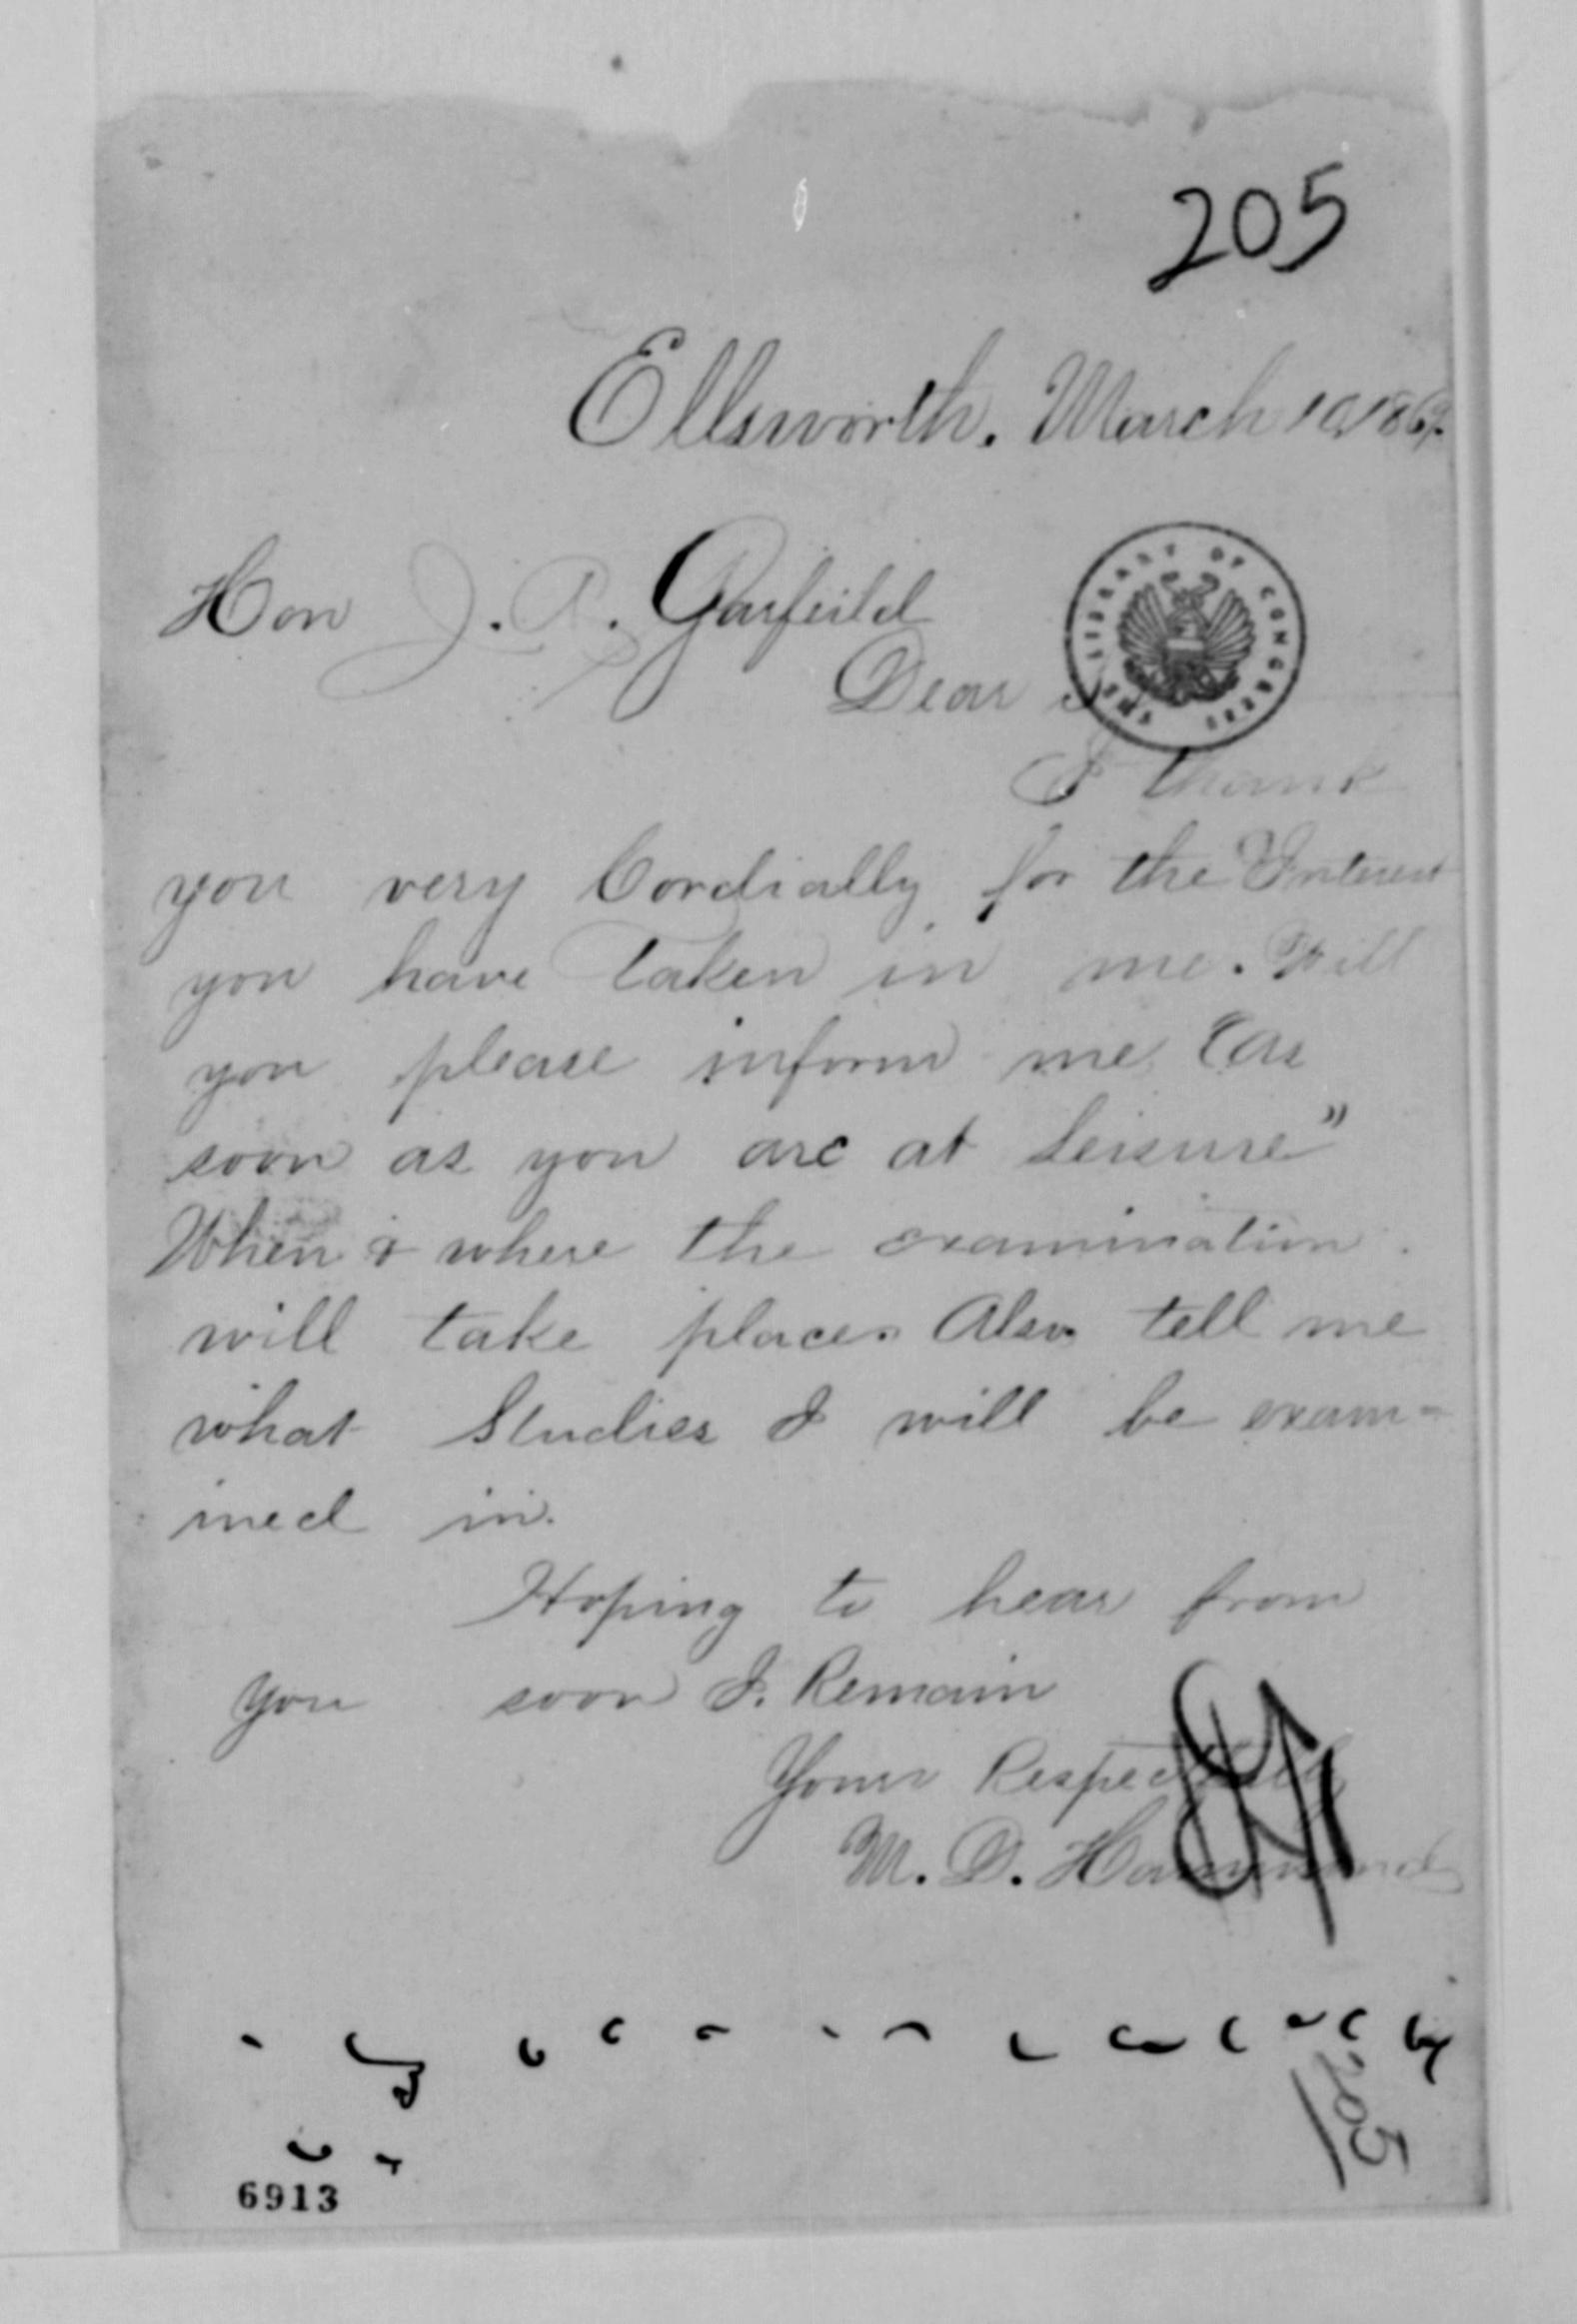 205
Ellsworth. March 10 186
Hon J. A. Garfeild
Dear
THE LIBRARY OF CONGRESS
I thank
you very Cordially for the Interest
you have Taken in me. Will
you please inform me "as
soon as you are at Leisure"
When & where the examination
will take place. Also tell me
what Studies I will be exam=
ined in.
Hoping to hear from
you soon I. Remain
Yours Respectfully
M. D. Hammond
205
6913